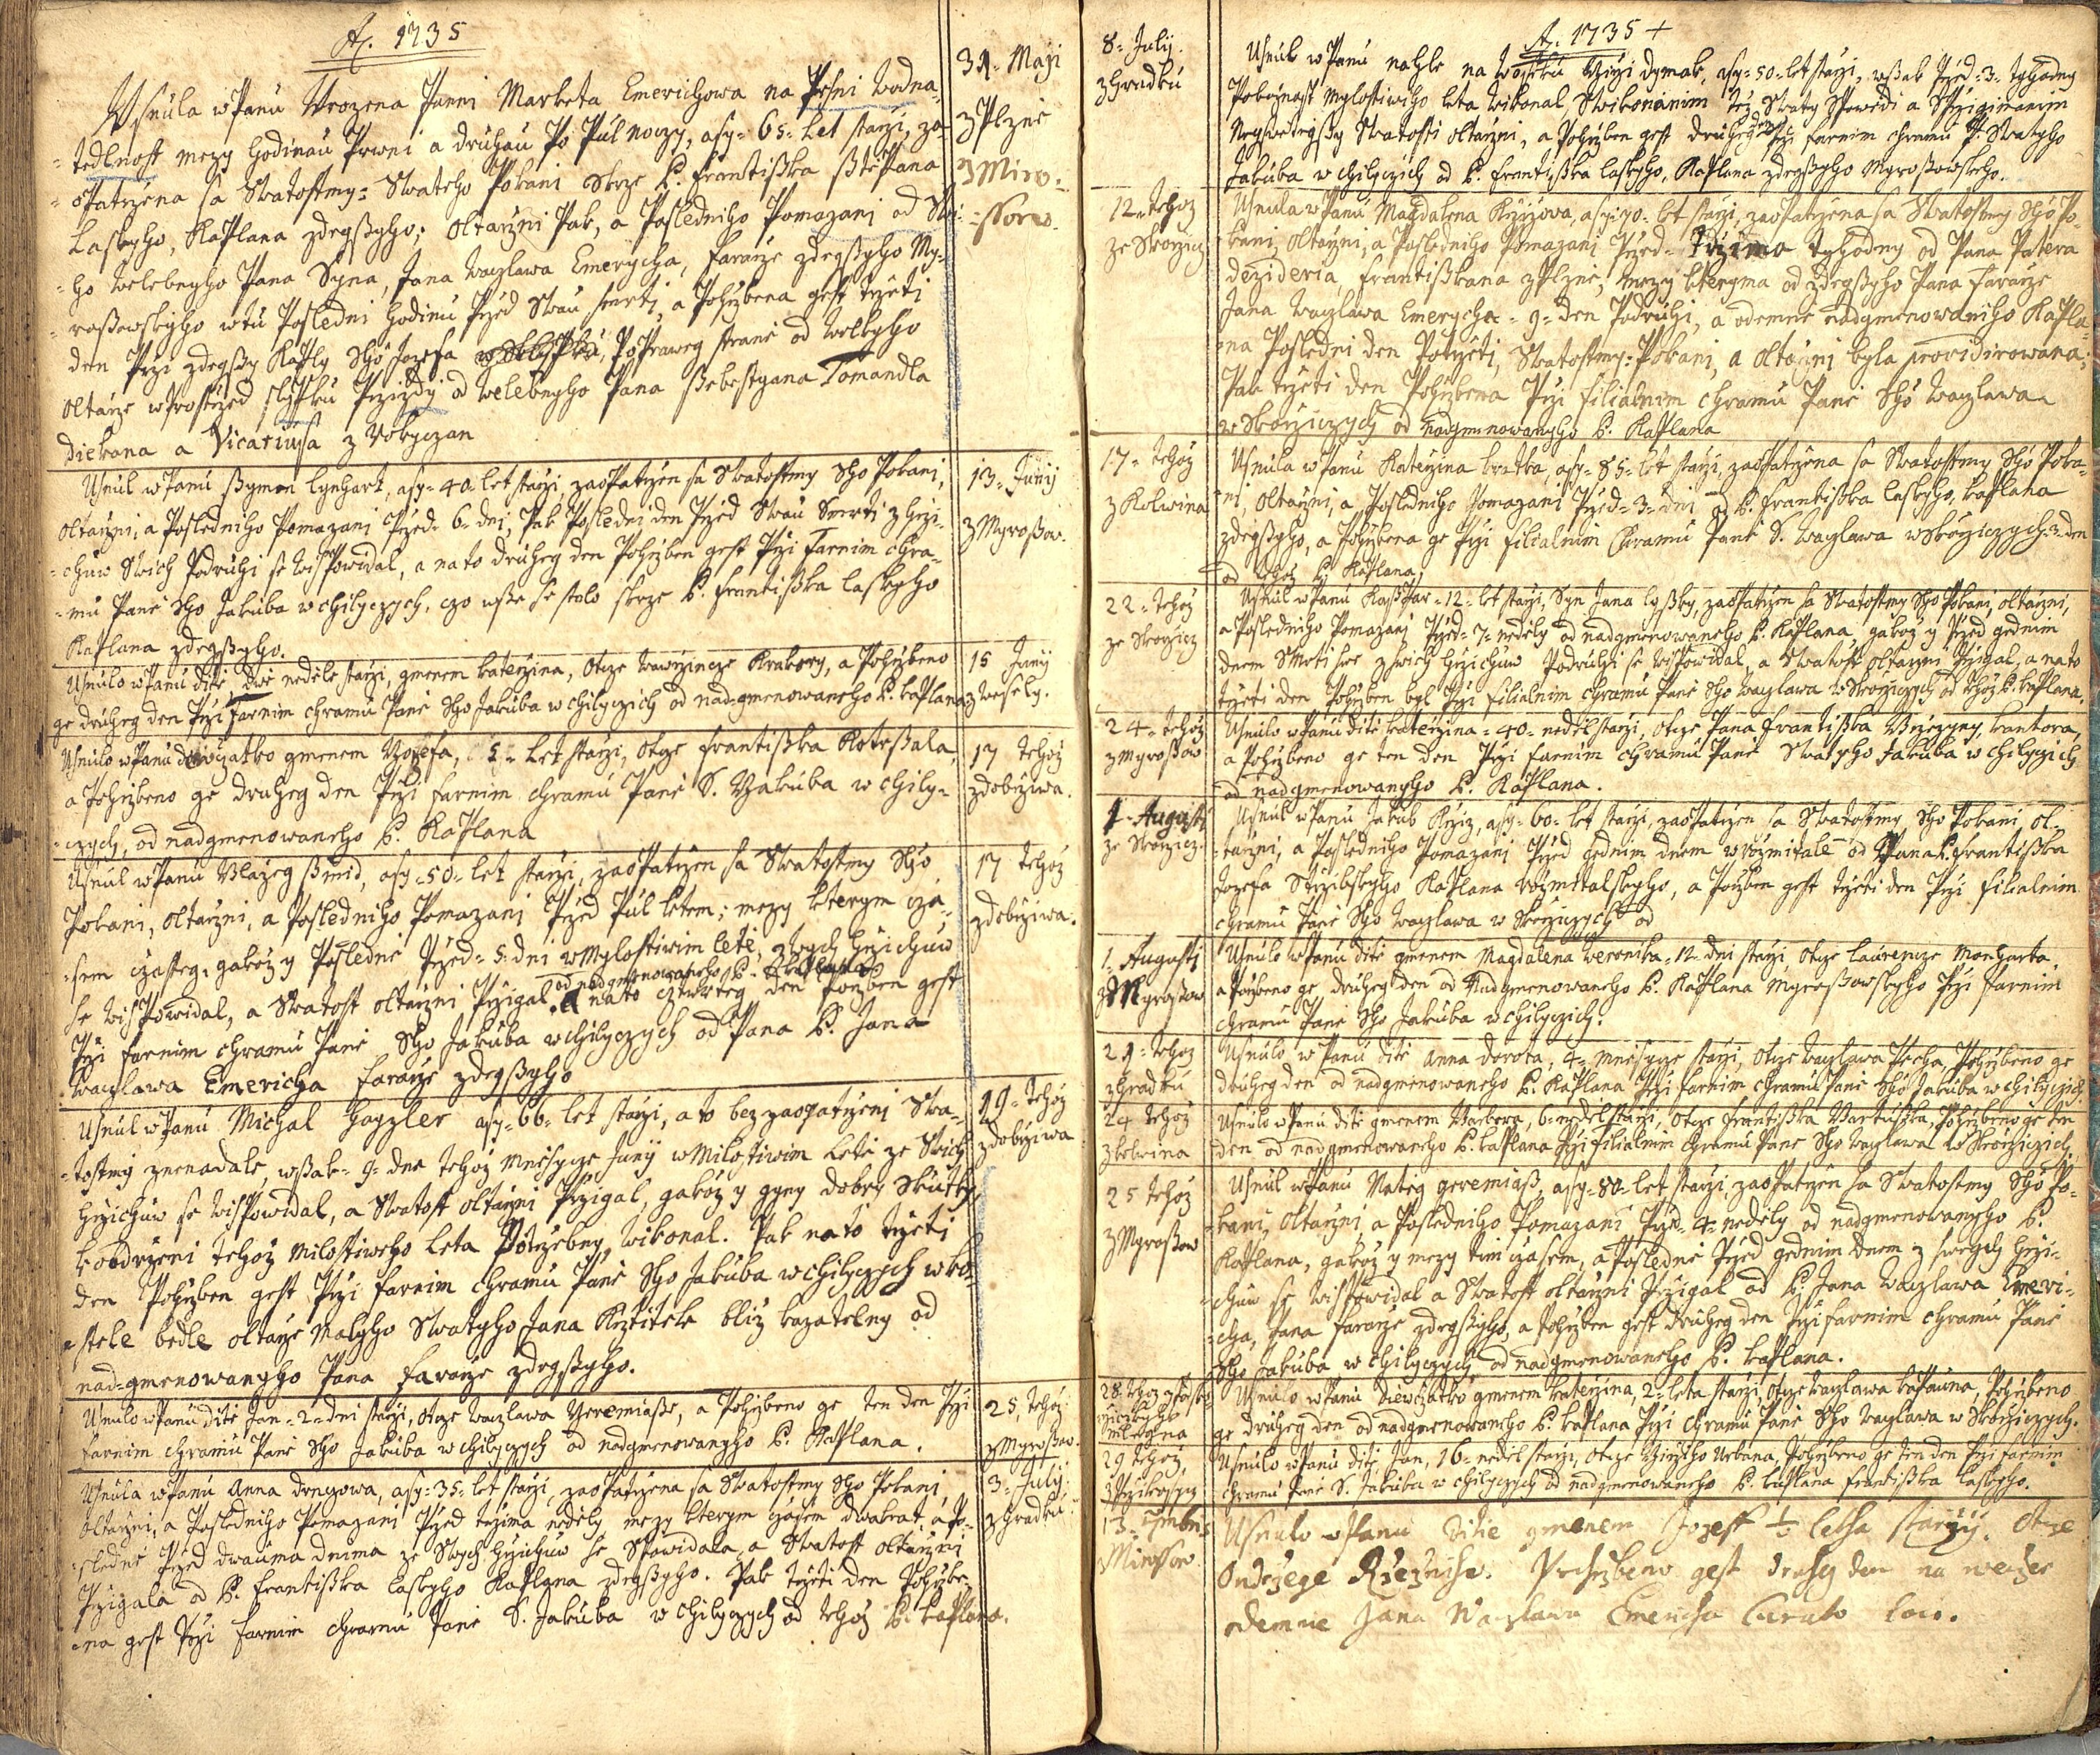 A. 1735
Usnula w Panu Urozena Panni Marketa Emerichowa na Prsni Wodna-
=tedlnost mezy hodinau Prwni a druhau Po Pul noczy, asy=65=let starzi, za-
=opatrzena sa Swatostmy= Swateho Pokani skrze k. Frantisska sstěpana
Laskyho, Kaplana zdegssyho; oltarzni Pak, a Posledniho Pomazani od Swe-
=ho welebnyho Pana Syna, Jana Waczlawa Emerycha, Fararze zdegssyho My-
=rossowskyho w tu Posledni hodinu Przed Swau smrti, a Pohrzbena gest trzeti
den Przi zdegssy Kaply Sho Jozefa Po Praweg straně od welkyho
oltarze w Prostrzed sklypku Przizdi od welebnyho Pana ssebestyana Tomandla
diekana a Vicariusa z Rokyczan
31. Maji
z Plzně
z Miro-
=ssowa.
Usnul w Panu ssymon Lynhart, asy=40=let starzi, zaopatrzen sa Swatostmy Sho Pokani,
oltarzni, a Posledniho Pomazani Przed=6=dni, Pak Posledni den Przed Swau Smrti z hrzi-
=chuw Swich Podruhi se wispowidal, a na to druheg den Pohrzben gest Przi Farnim chra-
=mu Paně Sho Jakuba w chilyczych, czo wsse se stalo skrze k. Frantisska Laskyho
Kaplana zdegssyho.
13. Junij
z Myrossow.
Usnulo w Panu ditě, dwě neděle starzi, gmenem katerzina, otcze Wawrzincze Krakory, a Pohrzbeno
ge druheg den Przi Farnim chramu Paně Sho Jakuba w chilyczich od nad=gmenowaneho k. kaplana
15 Junij
z wesely.
Usnulo w Panu děwczatko gmenem Jozefa, 5=Let starzi, otcze Frantisska Kotessala,
a Pohrzbeno ge druheg den Przi Farnim chramu Paně S. Jakuba w chily-
=czych, od nadgmenowaneho k. Kaplana
17 tehoz
z dobrziwa.
Usnul w Panu Blazeg ssmid, asy=50=let starzi, zaopatrzen sa Swatostmy Sho
Pokani, oltarzni, a Posledniho Pomazani Przed Pul Letem; mezy kterym cza-
=sem czasteg, gakoz y Posledně Przed=5=dni w Mylostiwim letě, z swych hrzichuw
od nadgmenowaneho k. kaplana
se wispowidal, a Swatost oltarzni Przigal. a na to cztwrteg den Porzben gest
Przi Farnim chramu Paně Sho Jakuba w chilyczych od Pana k. Jana
Waczlawa Emericha Fararze zdegssyho
17 tehoz
z dobrziwa.
Usnul w Panu Michal Hayzler asy=66=let starzi, a to bez zaopatrzeni Swa-
=tostmy znenadale, wssak=9=dne tehoz Měsycze Junij w Milostiwim Letě ze Swich
hrzichuw se wispowidal, a Swatost oltarzni Przigal, gakoz y gyny dobry Skutky,
k obdrzeni tehoz Milostiweho Leta Potrzebny, wikonal. Pak na to trzeti
den Pohrzben gest Przi Farnim chramu Paně Sho Jakuba w chilyczych w ko-
=stele bedle oltarze Malyho Swatyho Jana Krztitele bliz kazatelny od
nad=gmenowanyho Pana Fararze zdegssyho.
19=tehoz
z dobrziwa
Usnulo w Panu ditě Jan=2=dni starzi, otcze waczlawa Yeremiasse, a Pohrzbeno ge ten den Przi
Farnim chramu Paně Sho Jakuba w chilyczych od nadgmenowanyho k. Kaplana.
25, tehoz
z Myrossow.
Usnula w Panu Anna drngowa, asy=35=let starzi, zaopatrzena sa Swatostmy Sho Pokani
oltarzni, a Posledniho Pomazani Przed trzima neděly mezy kterym czasem dwakrat, a Po-
=sledně Przed dwauma dnima ze Swych hrzichuw se Spowidala, a Swatost oltarzni
Przigala od k. Frantisska Laskyho Kaplana zdegssyho. Pak trzeti den Pohrzbe-
=na gest Przi Farnim chramu Paně S. Jakuba w chilyczych od tehoz k. kaplana.
3=Julij
z Hradku.
A. 1735 +
8=Julij.
z Hradku
Usnul w Panu nahle na Wosseku Girzi dymak, asy=50=let starzi, wssak Przed=3=tyhodny
Poboznost Mylostiwiho leta wikonal Swikonanim tez Swaty Spowědi a Przigimanim
Neyswětegssy Swatosti oltarzni, a Pohrzben gest druheg den Przi Farnim chramu P. Swatyho
Jakuba w chilyczich od k. Frantysska Laskyho, Kaplana zdegssyho Myrossowskeho.
12=tehoz
ze Skorzicz
Usnula w Panu Magdalena Krzizowa, asy=70=let starzi, zaopatrzena sa Swatostmy Sho Po-
kani, oltarzni, a Posledniho Pomazani Przed=trzima tyhodny od Pana Patera
dezideria, Frantisskana z Plzně, mezy kteryma od zdegssyho Pana Fararze
Jana Waczlawa Emerycha=9=den Podruhi, a odemně nadgmenowaniho Kapla-
=na Posledni den Potrzeti, Swatostmy: Pokani, a oltarzni byla providirowana;
Pak trzeti den Pohrzbena Przi filialnim chramu Paně Sho Waczlawa
w Skorziczych od nadgmenowanyho k. Kaplana
17=tehoz
z Kolwina
Usnula w Panu Katerzina kratka, asy=85=let starzi, zaopatrzena sa Swatostmy Sho Poka-
=ni, oltarzni, a Posledniho Pomazani Przed=3=dni od k. Frantisska Laskyho, kaplana
zdegssyho, a Pohrzbena ge Przi filialnim Chramu Paně S. Waczlawa w Skorziczych=3=den
od tehoz k. Kaplana.
22=tehoz
ze Skorzicz
Usnul w Panu Kasspar=12=let starzi, Syn Jana lyssky, zaopatrzen sa Swatostmy Sho Pokani, oltarzni,
a Posledniho Pomazani Przed=7=neděly od nadgmenowaneho k. Kaplana, gakoz y Przed gednim
dnem Smrti swe z swich hrzichuw Podruhi se wispowidal, a Swatost oltarzni Przigal, a na to
trzeti den Pohrzben byl Przi filialnim chramu Paně Sho Waczlawa w Skorziczych od tehoz k. kaplana.
24=tehoz
z Myrossow
Usnulo w Panu ditě katerzina=40=neděl starzi, otcze Jana Frantisska Brzezyny, kantora,
a Pohrzbeno ge ten den Przi Farnim chramu Paně Swatyho Jakuba w chilyczich
od nadgmenowanyho k. Kaplana.
1=Augusti
ze Skorzicz.
Usnul w Panu Jakub Krziz, asy=60=let starzi, zaopatrzen sa Swatostmy Sho Pokani, ol-
=tarzni, a Posledniho Pomazani Przed gednim dnem w rozmitale od Pana k. Frantisska
Jozefa Strzibskyho Kaplana rozmitalskyho, a Porzben gest trzeti den Przi filialnim
chramu Paně Sho Waczlawa w Skorziczych od
1=Augusti
z Myrossow
Usnulo w Panu ditě gmenem Magdalena Weronika=12=dni starzi, otcze Laurencze Monharta
a Porzbeno ge druheg den od Nadgmenowaneho k. Kaplana Myrossowskyho Przi Farnim
chramu Paně Sho Jakuba w chilyczich.
21=tehoz
z Hradku
Usnulo w Panu ditě Anna dorota, 4=mněsycze starzi, otcze Waczlawa Pecha, Pohrzbeno ge
druheg den od nadgmenowaneho k. Kaplana Przi Farnim chramu Paně Sho Jakuba w chilyczich
24 tehoz
z kolwina
Usnulo w Panu ditě gmenem Barbora, 6=neděl starzi, otcze Frantisska Bartusska, Pohrzbeno ge ten
den od nadgmenowaneho k. kaplana Przi filialnim chramu Paně Sho Waczlawa w Skorziczich.
25 tehoz
z Myrossow
Usnul w Panu Mateg geremiass, asy=80=let starzi, zaopatrzen sa Swatostmy Sho Po-
=kani, oltarzni, a Posledniho Pomazani Przed=4=neděly od nadgmenowanyho k.
Kaplana, gakoz y mezy tim czasem, a Posledně Przed gednim dnem z swych hrzi-
=chuw se wispowidal a Swatost oltarzni Przigal od k. Jana Waczlawa Emeri-
=cha, Pana Fararze zdegssyho, a Pohrzben gest druheg den Przi Farnim chramu Paně
Sho Jakuba w chilyczych od nadgmenowaneho k. kaplana.
28. tehoz z Sko-
rziczkyho
mlegna
Usnulo w Panu děwczatko gmenem katerzina, 2=leta starzi, otcze Waczlawa kapauna, Pohrzbeno
ge druheg den od nadgmenowaneho k. kaplana Przi chramu Paně Sho Waczlawa w Skorziczych.
29 tehoz,
z Przikosycz
Usnulo w Panu ditě Jan, 16=neděl starzi, otcze Girziho Urbana, Pohrzbeno ge ten den Przi Farnim
chramu Paně S. Jakuba w chilyczych od nadgmenowaneho k. kaplana Frantisska Laskyho.
13=7mbris
Mirossow
Usnulo w Panu Ditie gmenem Jozeff ½ letha starzij. otcze
Ondrzege Pohrzbeno gest druhy den na weczer
odemne Jana Waczlawa Emericha Curato loci.